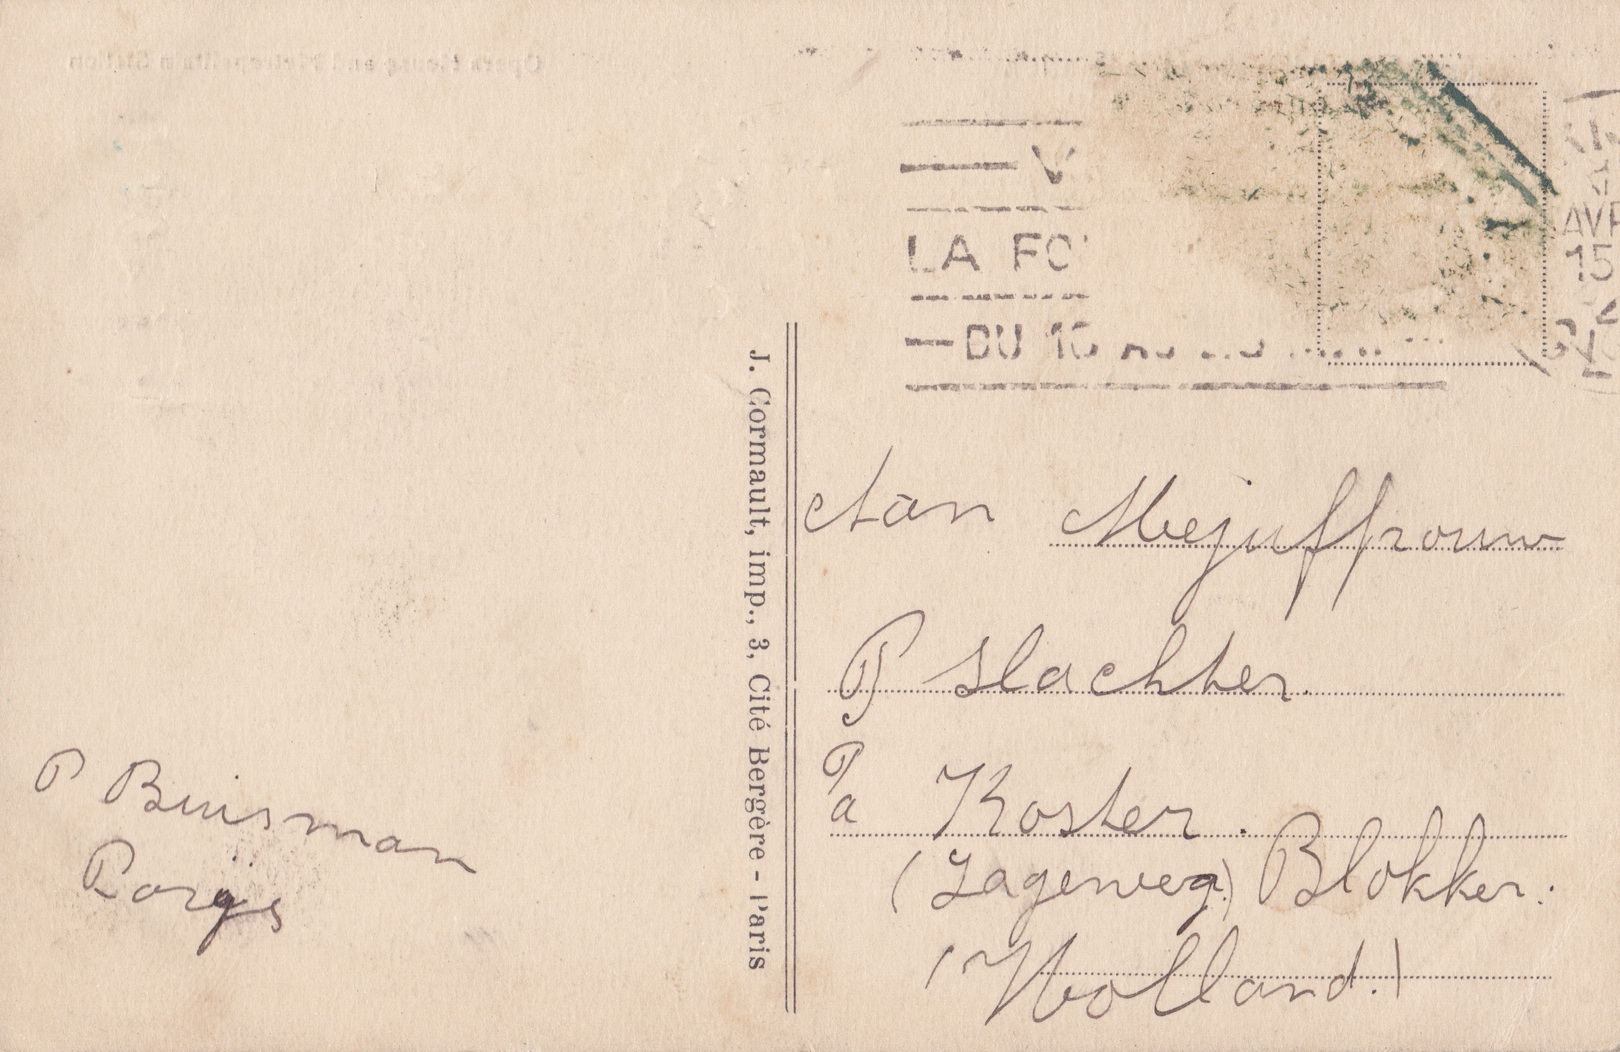 Opera House and Metropolitain Station
V
LA FO
DU 10
AVR
15
J. Cormault, imp., 3, Cité Bergère - Paris
Aan Mejuffrouw
P Slachter
Pa Koster.
(Lageweg) Blokker.
(Holland.)
P Buisman
Parijs